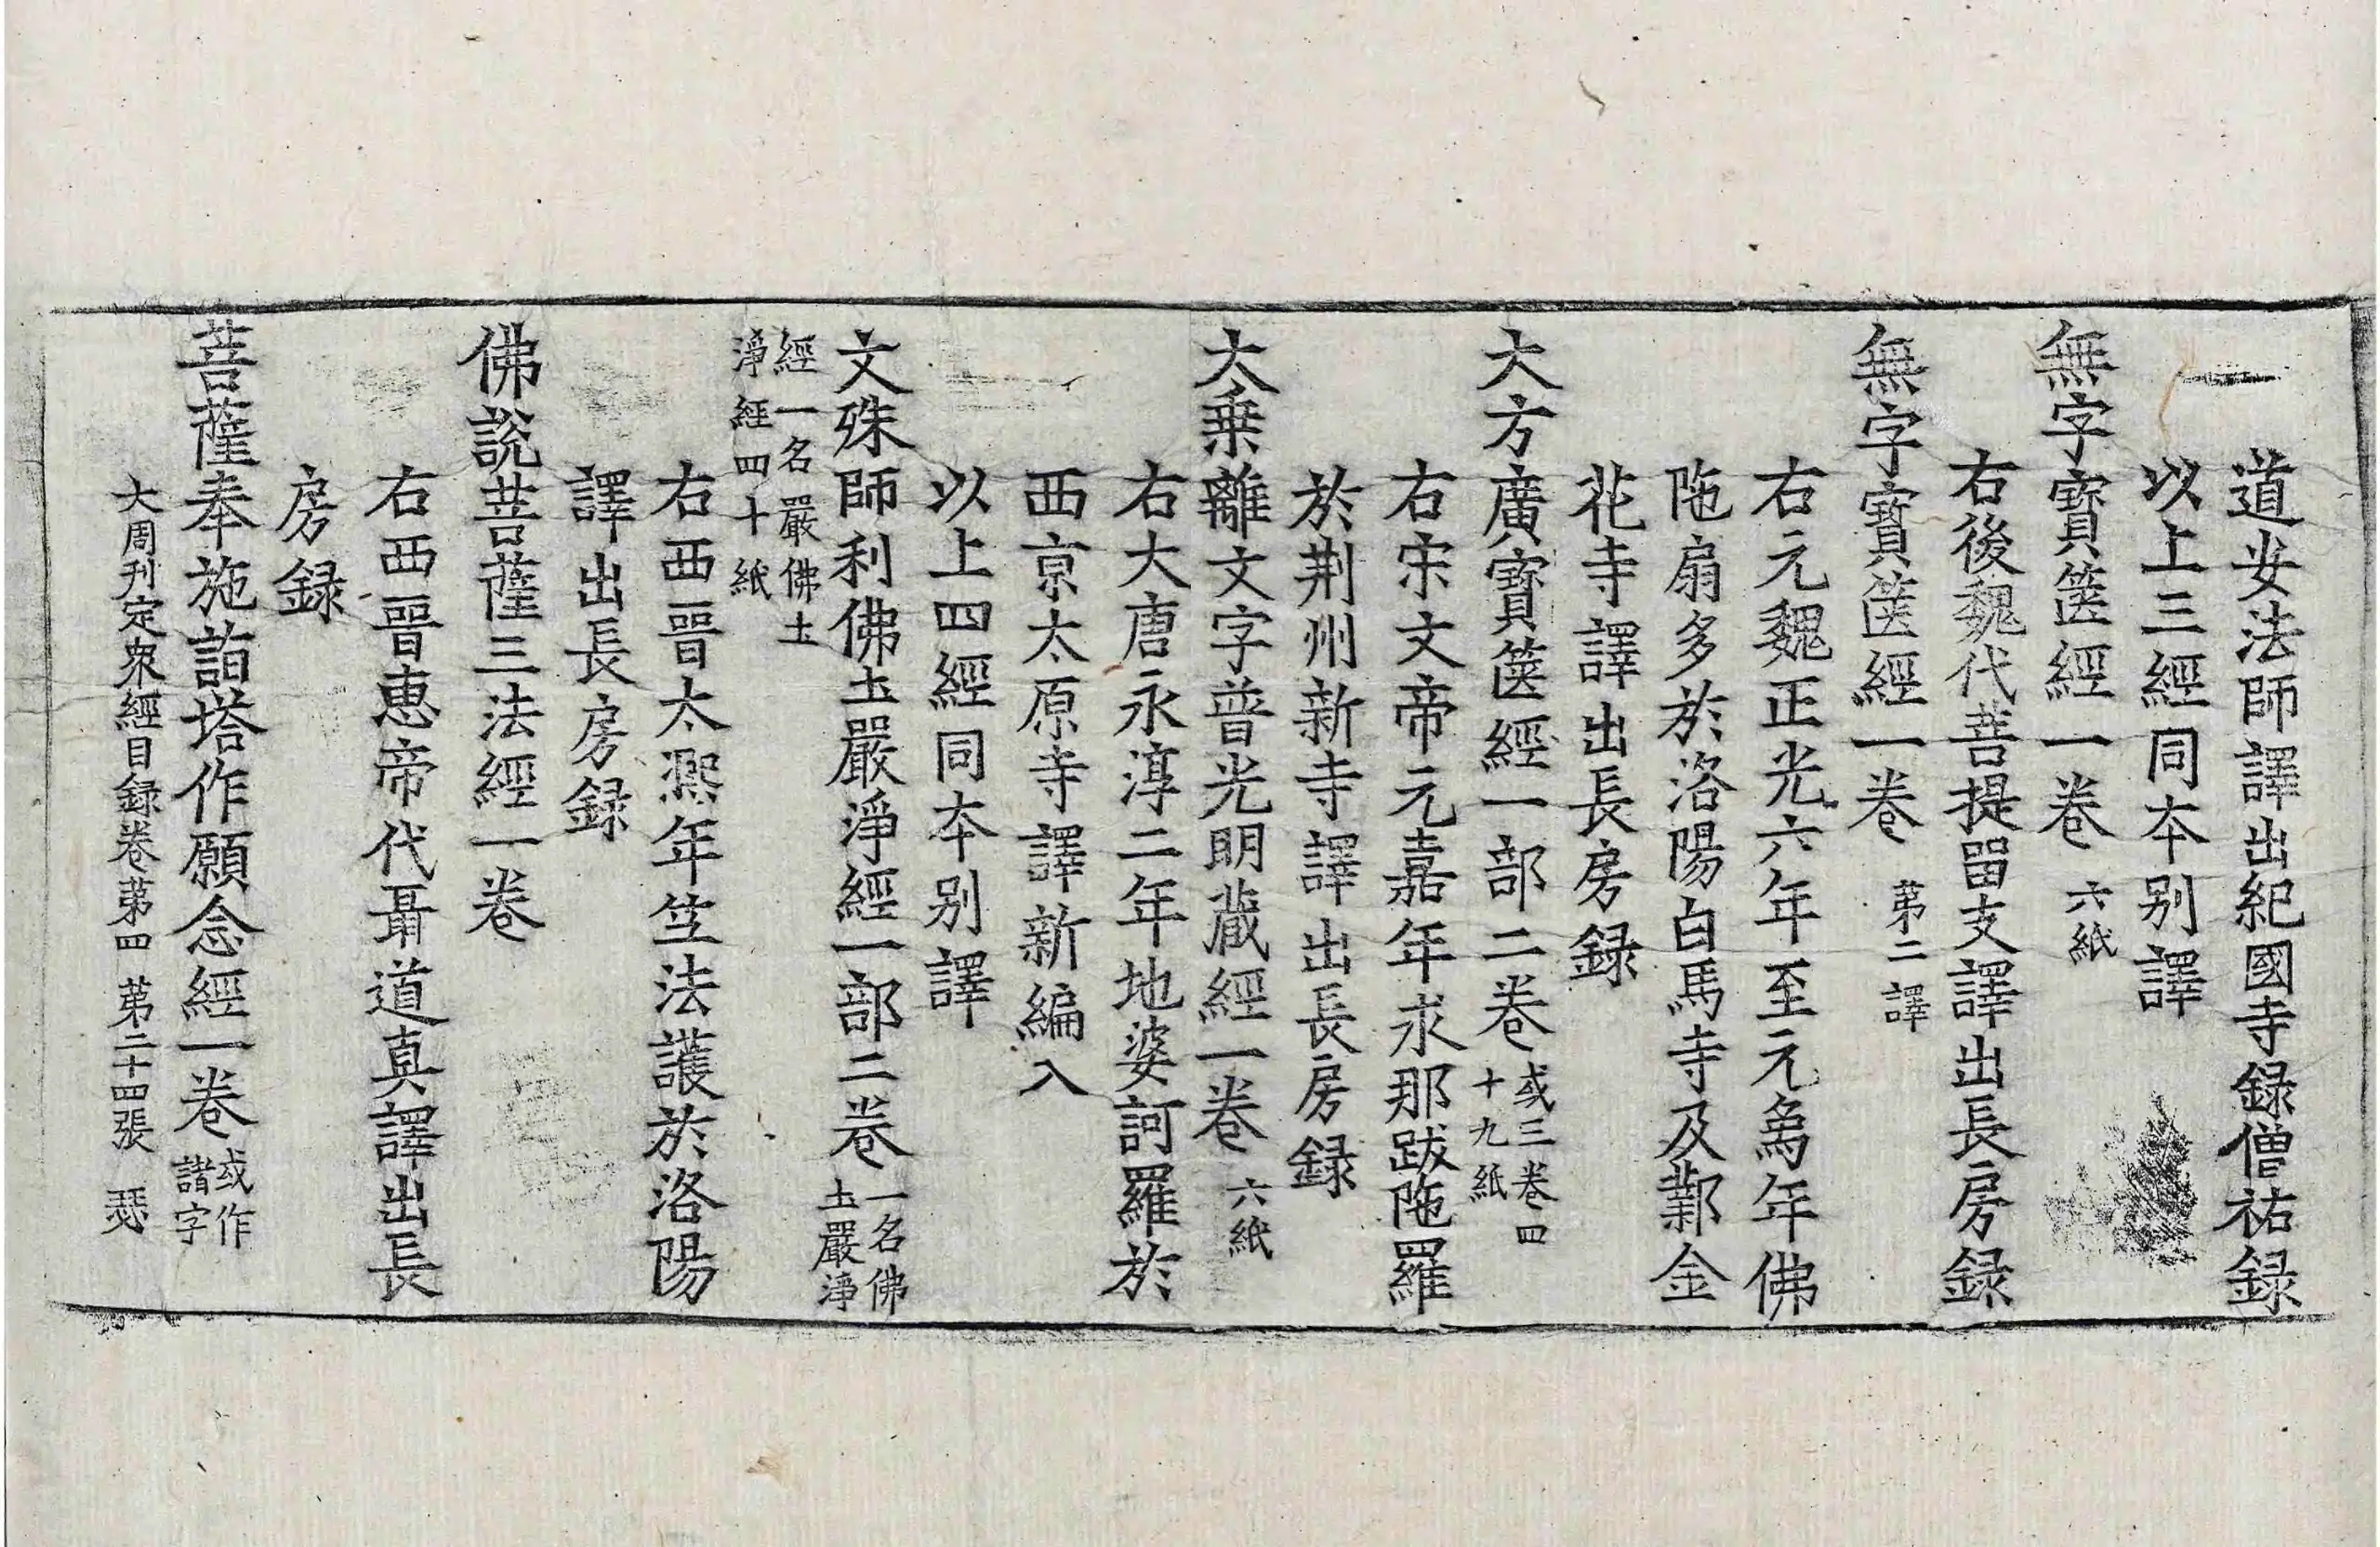 道安法師譯出紀國寺録僧祐録
以上三經同本別譯
無字寳篋經一卷 六紙
右後魏代菩提留支譯出長房録
無字寳篋經一卷 苐二譯
右元魏正光六年至元象年佛
陁扇多於洛陽白馬寺及鄴金
花寺譯出長房録
大方廣寳篋經一部二卷 或三卷四
十九紙
右宋文帝元嘉年求那跋陁羅
於荆州新寺譯出長房録
大乗離文字普光明蔵經一卷 六紙
右大唐永淳二年地婆訶羅於
西京太原寺譯新編入
以上四經同本別譯
文殊師利佛圡嚴淨經一部二卷 一名佛
圡嚴淨
經一名嚴佛圡
淨經四十紙
右西晉太熈年竺法護於洛陽
譯出長房録
佛說菩薩三法經一卷
右西晉恵帝代聶道真譯出長
房録
菩薩奉施詣塔作願念經一卷 或作
諸字
大周刊定衆經目録卷苐四 苐二十四張 瑟